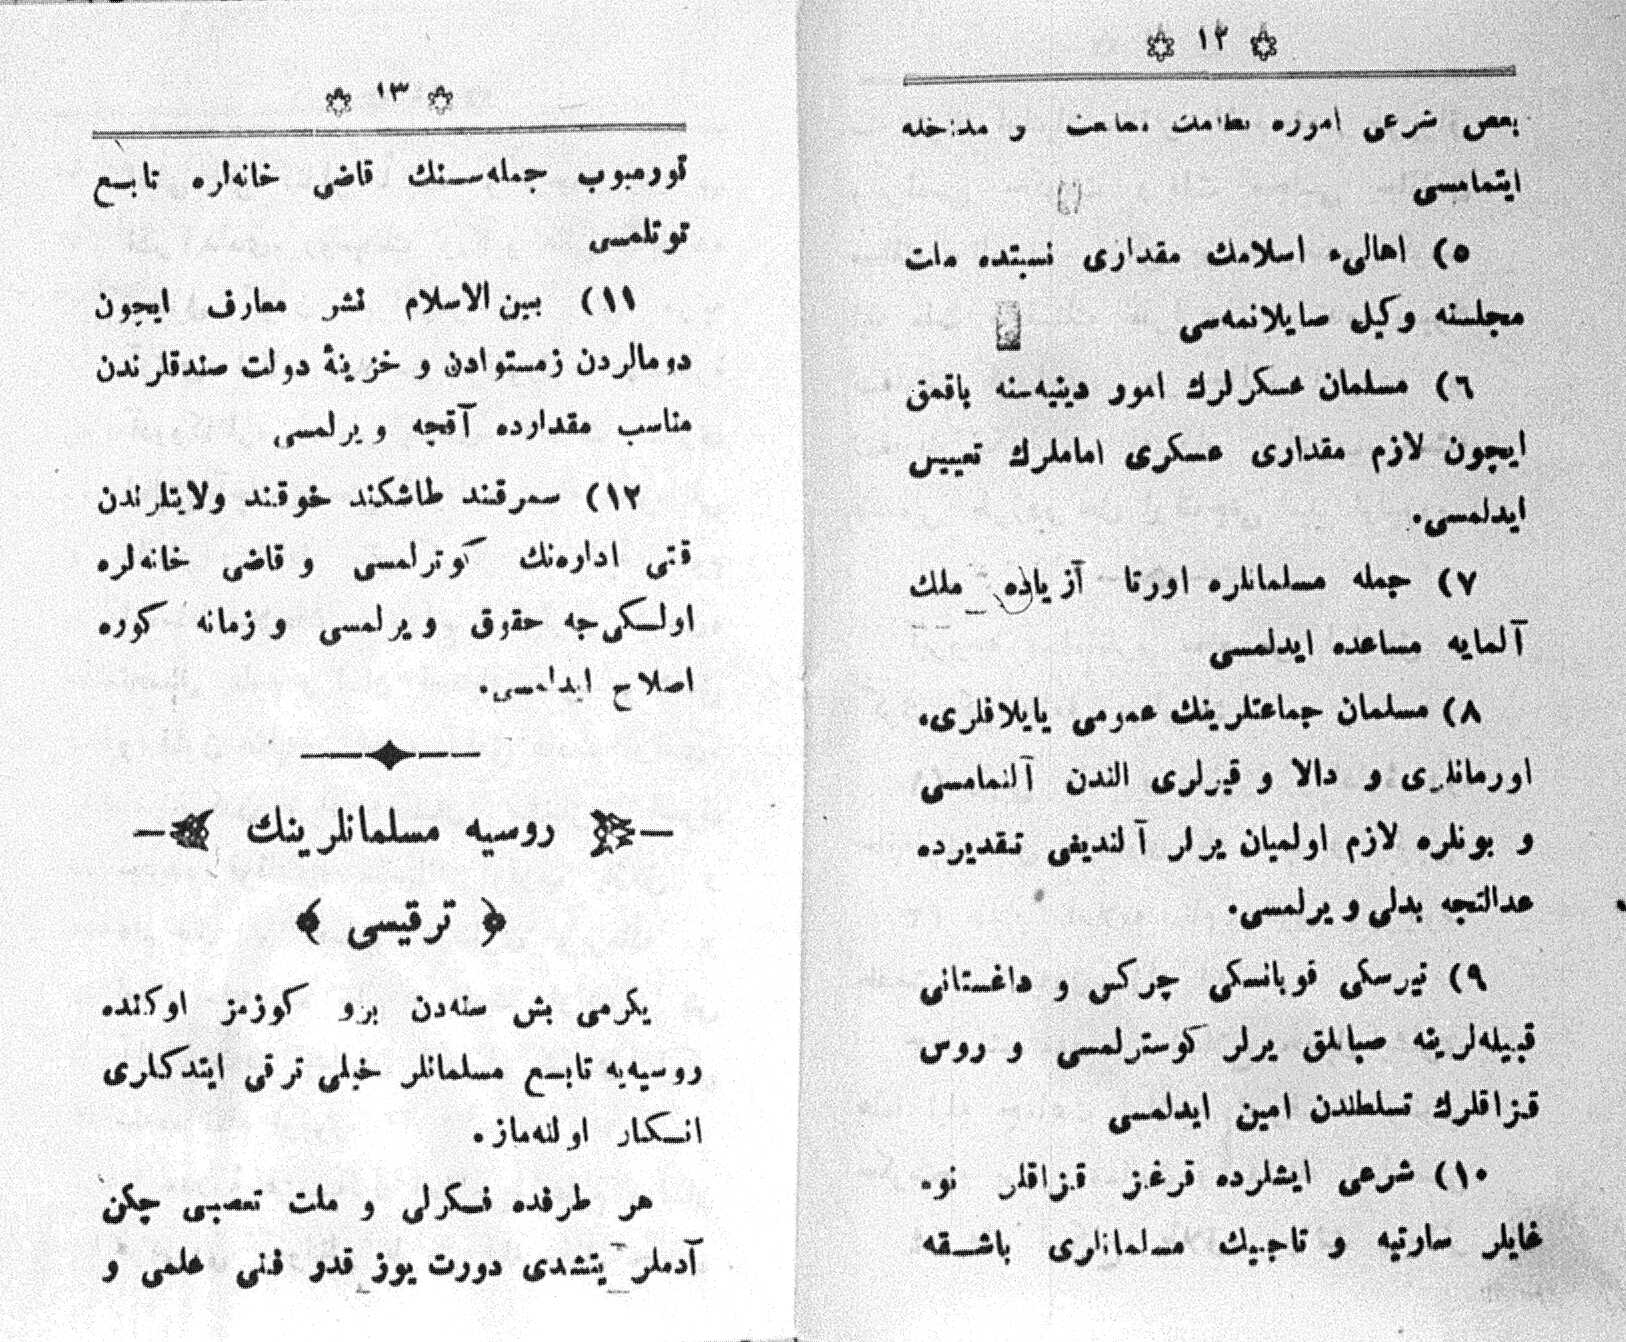 ١٢
بعض شرعی اموره نظامت ممانعت و مداخله
ایتمامسی
٥) اهالیء اسلامك مقداری نسبتده ملت
مجلسنه وكیل صایلانمه‌سی
٦) مسلمان عسكرلرك امور دینیه‌سنه باقمق
ایچون لازم مقداری عسكری اماملرك تعیین
ایدلمسی.
٧) جمله مسلمانلره اورتا آزیاده ملك
آلمایه مساعده ایدلمسی
٨) مسلمان جماعتلرینك عمومی یایلاقلری،
اورمانلری و دالا و قیرلری الندن آلنمامسی
و بونلره لازم اولمیان یرلر آلندیغی تقدیرده
عدالتجه بدلی ویرلمسی.
٩) تیرسكی قوبانسكی چركس و داغستانی
قبیله‌لرینه صبانلق یرلر كوسترلمسی و روس
قزاقلرك تسلطندن امین ایدلمسی
١٠) شرعی ایشلرده قرغز قزاقلر نوه
غایلر سارتیه و تاجیك مسلمانلری باشقه
١٣
تورمیوب جمله‌سنك قاضی خانه‌لره تابع
توتلمسی
١١) بین الاسلام نشر معارف ایچون
دومالردن زمستوادن و خزینهٔ دولت صندقلرندن
مناسب مقدارده آقچه ویرلمسی
١٢) سمرقند طاشكند خوقند ولایتلرندن
قتی اداره‌نك كوترلمسی و قاضی خانه‌لره
اولكی‌جه حقوق ویرلمسی و زمانه كوره
اصلاح ایدلمسی.
روسیه مسلمانلرینك
ترقیسی
یكرمی بش سنه‌دن برو كوزمز اوكنده
روسیه‌یه تابع مسلمانلر خیلی ترقی ایتدكلری
انكار اولنه‌ماز.
هر طرفده فكرلی و ملت تعصبی چكن
آدملر یتشدی دورت یوز قدر فنی علمی و